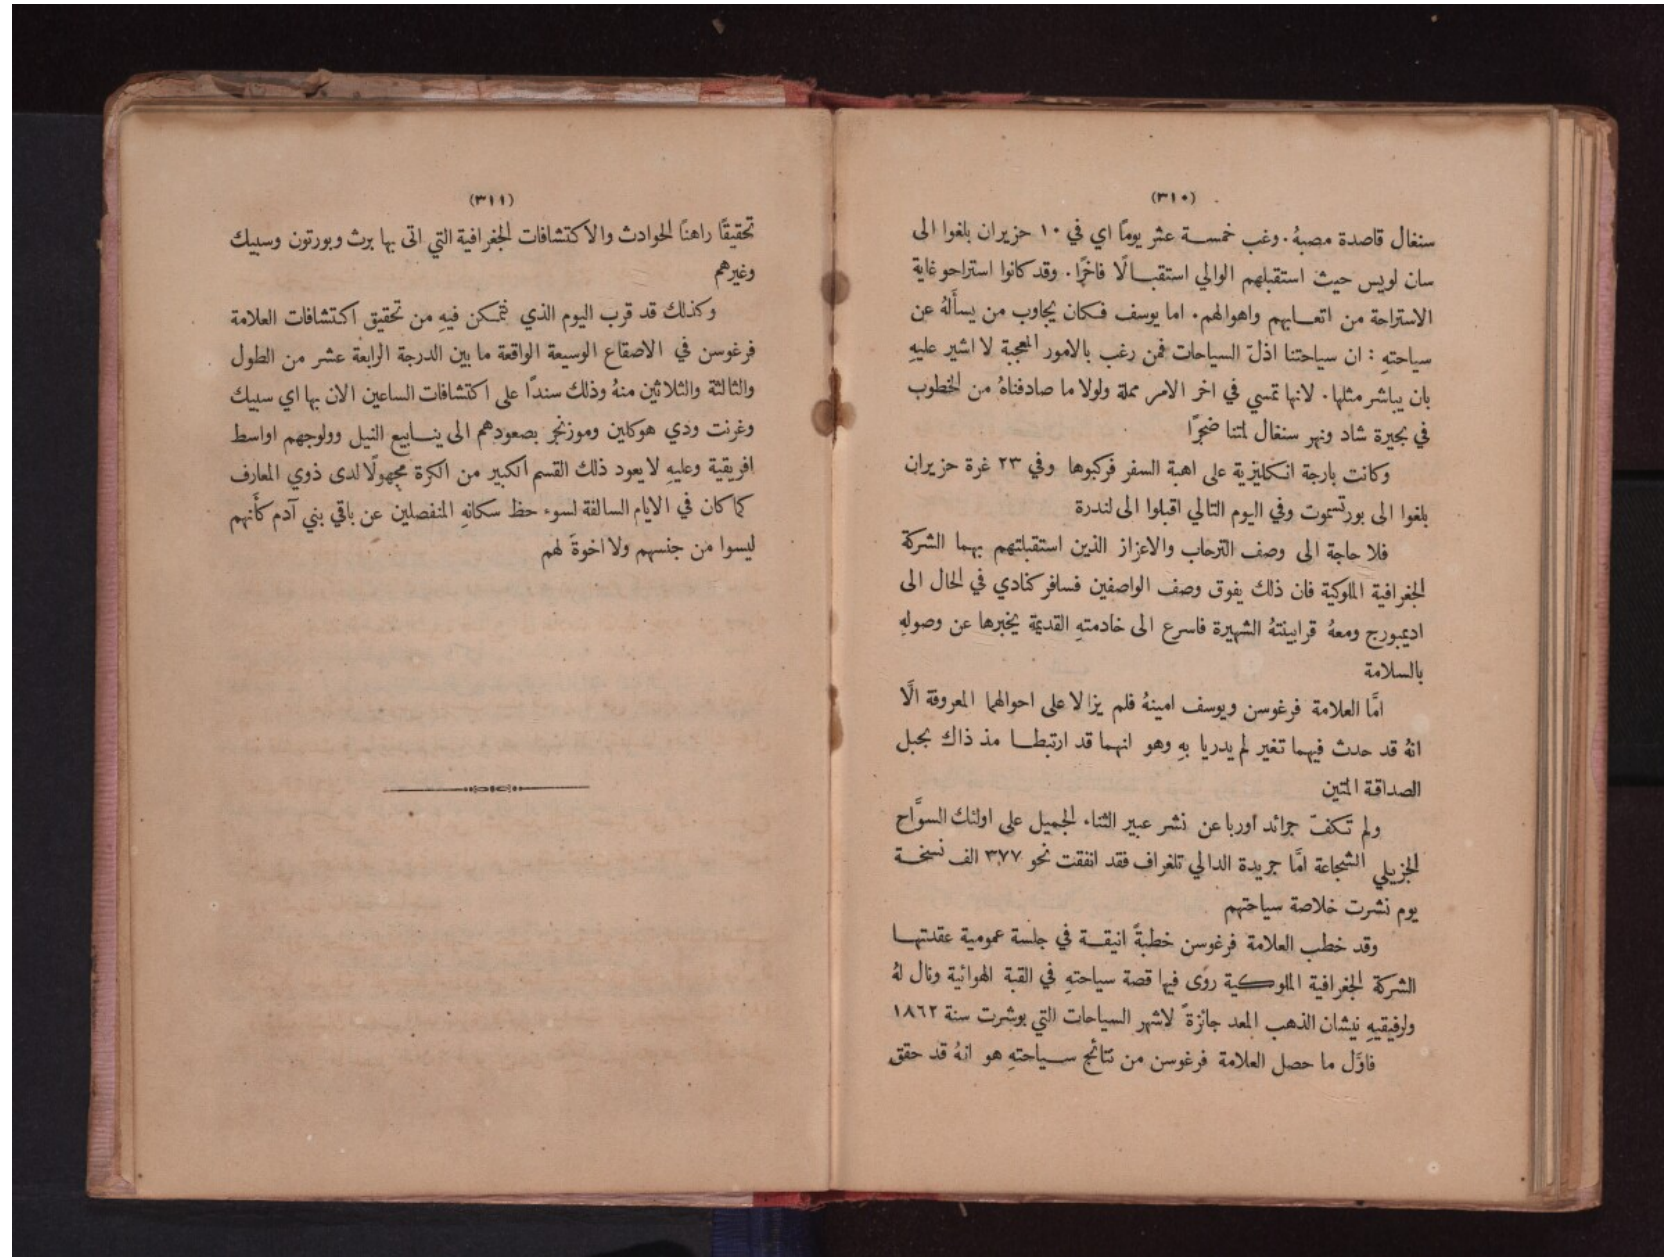 (٣١٠)
سنغال قاصدة مصبهُ. وغب خمسة عشر يومًا اي في ١٠ حزيران بلغوا الى
سان لويس حيث استقبلهم الوالي استقبالًا فاخرًا. وقد كانوا استراحو غاية
الاستراحة من اتعابهم واهوالهم. اما يوسف فكان يجاوب من يسأَلهُ عن
سياحتهِ : ان سياحتنا اذلّ السياحات فمن رغب بالامور المعجبة لا اشير عليهِ
بان يباشر مثلها. لانها تمسي في اخر الامر مملة ولولا ما صادفناهُ من الخطوب
في بحيرة شاد ونهر سنغال لمتنا ضجرًا
وكانت بارجة انكليزية على اهبة السفر فركبوها وفي ٢٣ غرة حزيران
بلغوا الى بورتسموت وفي اليوم التالي اقبلوا الى لندرة
فلا حاجة الى وصف الترحاب والاعزاز الذين استقبلتهم بهما الشركة
الجغرافية الملوكية فان ذلك يفوق وصف الواصفين فسافر كنادي في الحال الى
اديمبورج ومعهُ قرابينتهُ الشهيرة فاسرع الى خادمتهِ القديمة يخبرها عن وصولهِ
بالسلامة
امَّا العلامة فرغوسن ويوسف امينهُ فلم يزالا على احوالهما المعروفة الَّا
انهُ قد حدث فيهما تغير لم يدريا بهِ وهو انهما قد ارتبطا مذ ذاك بحبل
الصداقة المتين
ولم تكفّ جرائد اوربا عن نشر عبير الثناء الجميل على اولئك السوَّاح
الجزيلي الشجاعة امَّا جريدة الدالي تلغراف فقد انفقت نحو ٣٧٧ الف نسخة
يوم نشرت خلاصة سياحتهم
وقد خطب العلامة فرغوسن خطبةً انيقة في جلسة عمومية عقدتها
الشركة الجغرافية الملوكية روى فيها قصة سياحتهِ في القبة الهوائية ونال لهُ
ولرفيقيهِ نيشان الذهب المعد جائزةً لاشهر السياحات التي بوشرت سنة ١٨٦٢
فاوَّل ما حصل العلامة فرغوسن من نتائج سياحتهِ هو انهُ قد حقق
(٣١١)
تحقيقًا راهنًا الحوادث والاكتشافات الجغرافية التي اتى بها برث وبورتون وسبيك
وغيرهم
وكذلك قد قرب اليوم الذي نتمكن فيهِ من تحقيق اكتشافات العلامة
فرغوسن في الاصقاع الوسيعة الواقعة ما بين الدرجة الرابعة عشر من الطول
والثالثة والثلاثين منهُ وذلك سندًا على اكتشافات الساعين الان بها اي سبيك
وغرنت ودي هوكلين وموزنجر بصعودهم الى ينابيع النيل وولوجهم اواسط
افريقية وعليهِ لا يعود ذلك القسم الكبير من الكرة مجهولًا لدى ذوي المعارف
كما كان في الايام السالفة لسوء حظ سكانهِ المنفصلين عن باقي بني آدم كأَنهم
ليسوا من جنسهم ولا اخوةً لهم